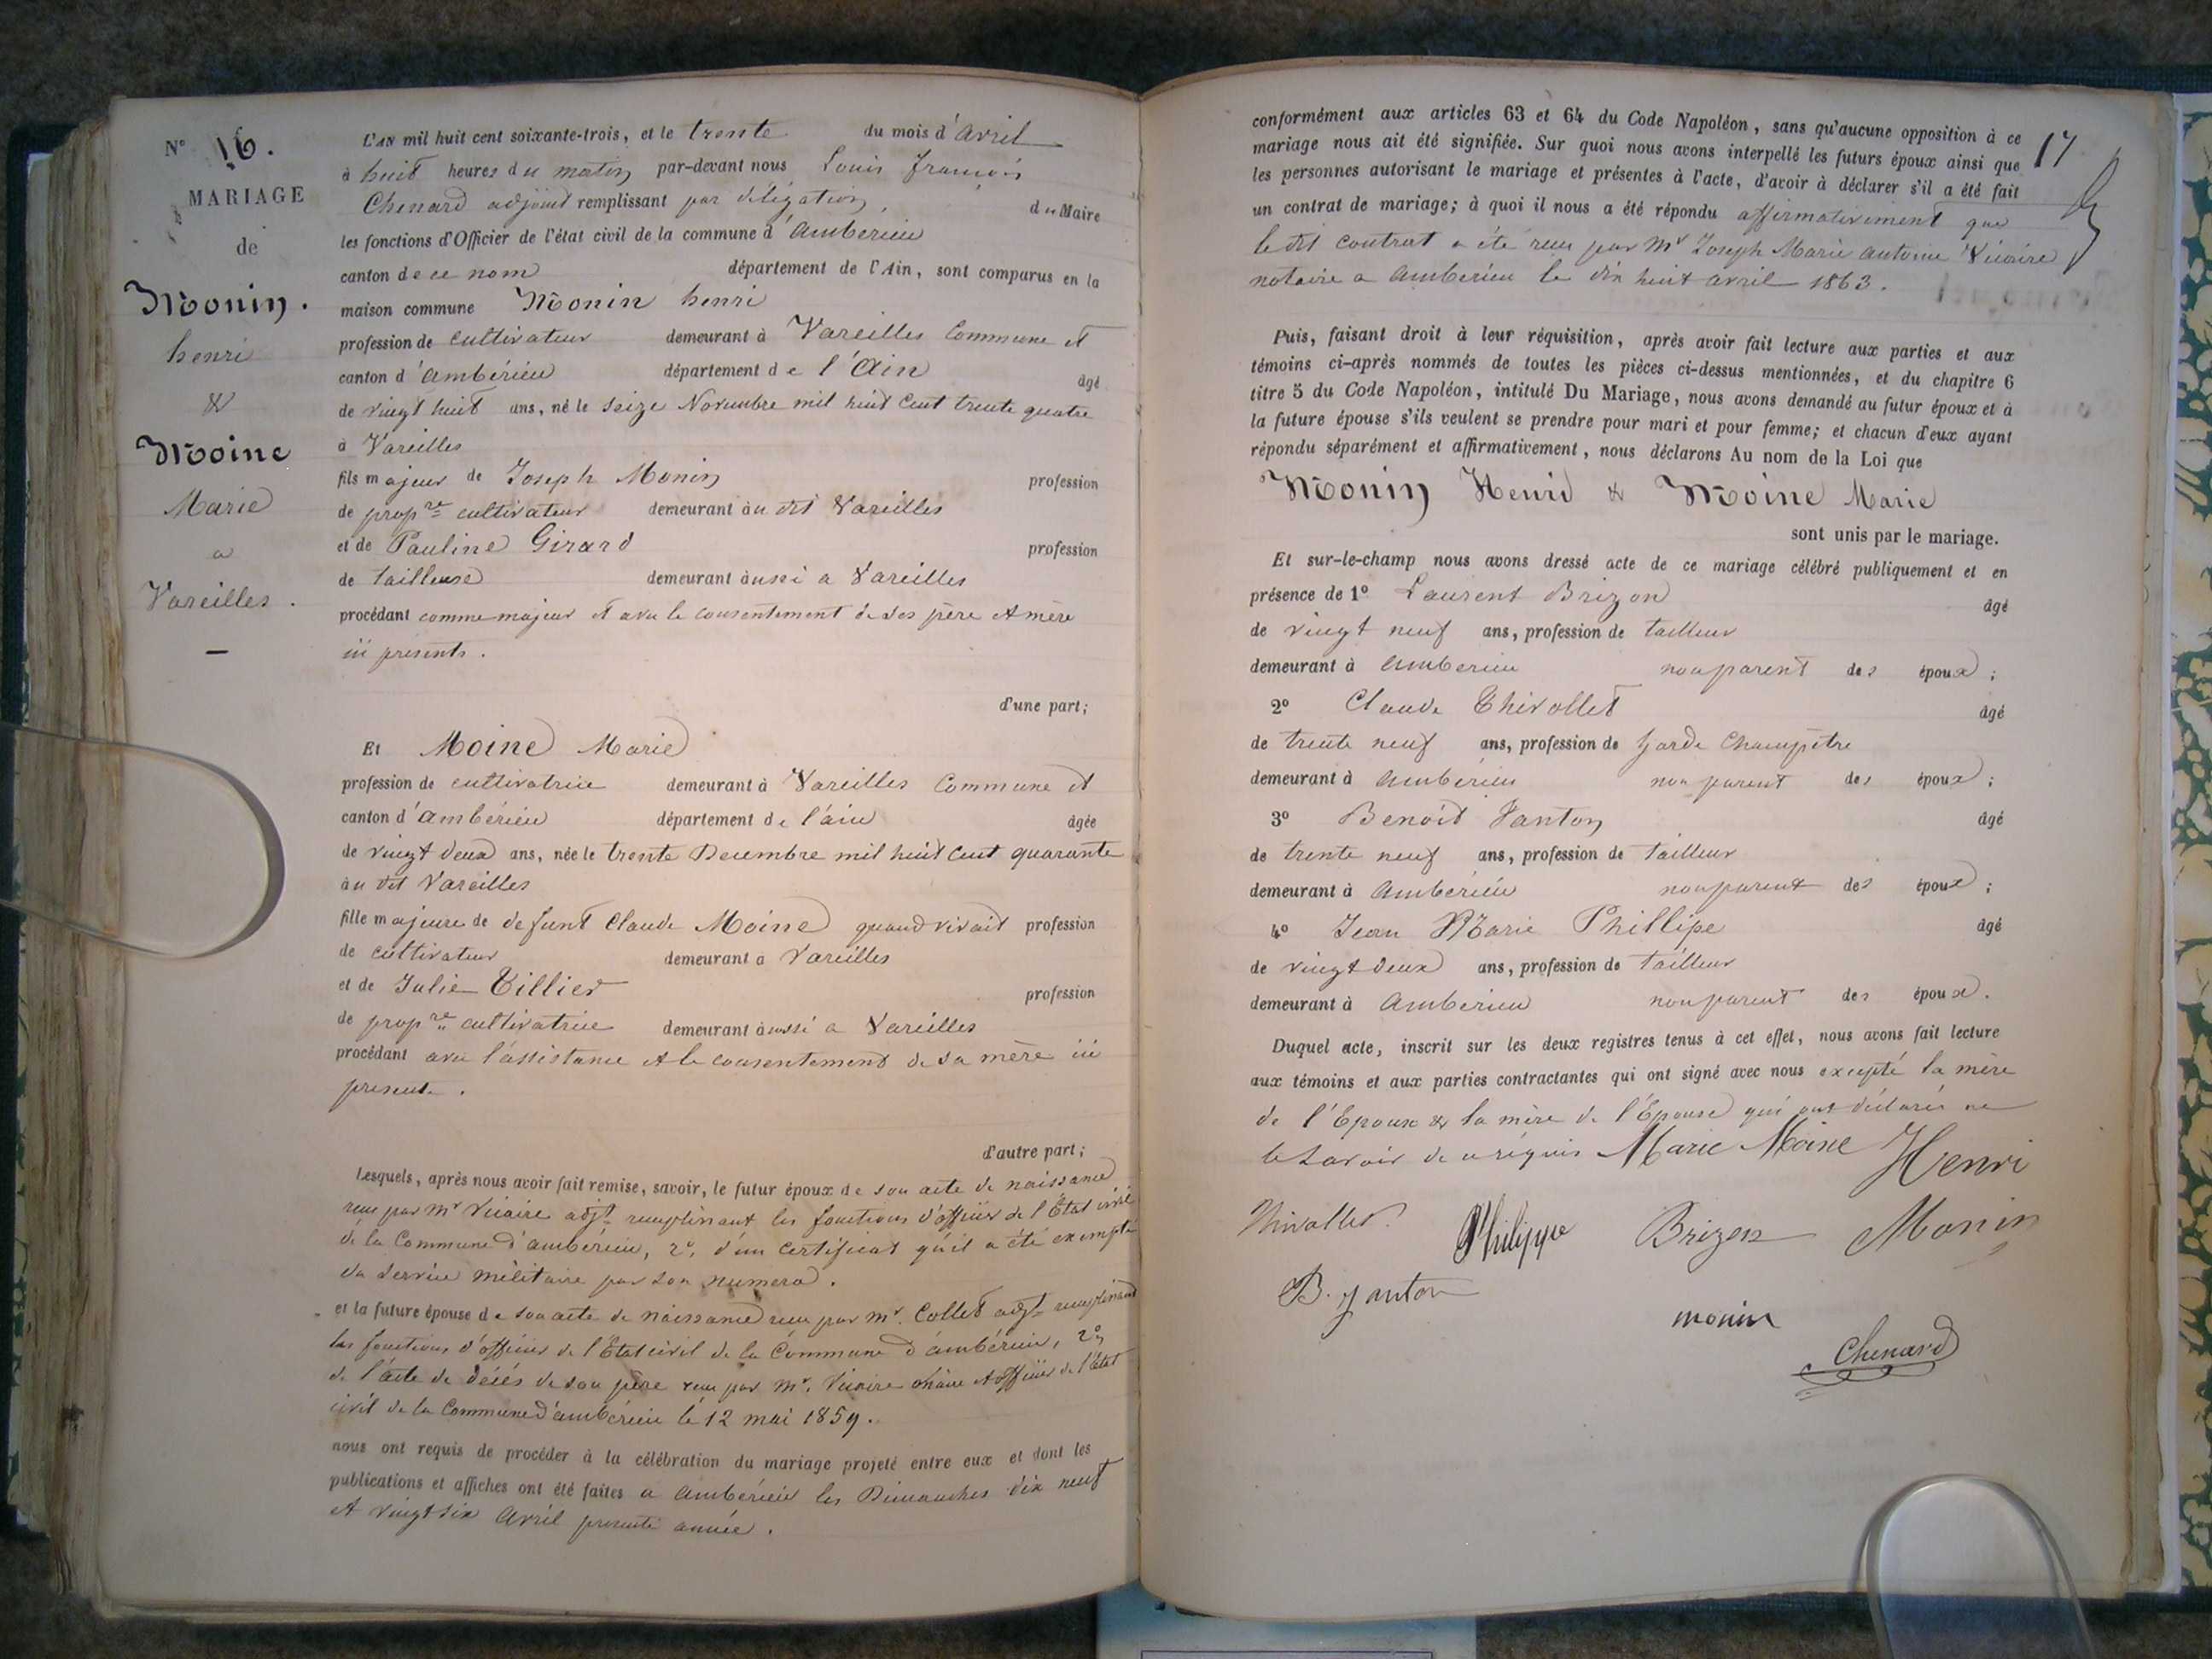 N° 16.
MARIAGE
de
Monin.
henri
&
Moine
Marie
a
Vareilles.
L'AN mil huit cent soixante-trois, et le trente du mois d'avril
à huit heures du matin par-devant nous Louis françois
Chenard adjoint remplissant par délégation, du Maire
les fonctions d'Officier de l'état civil de la commune d'ambérieu
canton de ce nom département de l'Ain, sont comparus en la
maison commune Monin henri
profession de cultivateur demeurant à Vareilles commune et
canton d'ambérieu département de l'Ain âgé
de vingt huit ans, né le seize Novembre mil huit cent trente quatre
à Vareilles
fils majeur de Joseph Monin profession
de prop.re cultivateur demeurant au dit Vareilles
et de Pauline Girard profession
de tailleuse demeurant aussi a Vareilles
procédant comme majeur et avec le consentement de ses père et mère
ici presents.
d'une part;
Et Moine Marie
profession de cultivatrice demeurant à Vareilles commune et
canton d'ambérieu département de l'ain âgée
de vingt deux ans, née le trente Decembre mil huit cent quarante
au dit Vareilles
fille majeure de defunt Claude Moine quand vivait profession
de cultivateur demeurant a Vareilles
et de Julie Tillier profession
de prop.re cultivatrice demeurant aussi a Vareilles
procédant avec l'assistance et le consentement de sa mère ici
presente.
d'autre part;
Lesquels, après nous avoir fait remise, savoir, le futur époux de son acte de naissance
recu par Mr Vicaire adjt remplissant les fonctions d'officier de l'Etat civil
de la Commune d'ambérieu, 2°, d'un certificat qu'il a été exempté
du service militaire par son numero.
et la future épouse de son acte de naissance recu par Mr. Collet adjt remplissant
les fonctions d'officier de l'Etat civil de la Commune d'ambérieu, 2°,
de l'acte de décés de son père recu par Mr. Vicaire maire et officier de l'Etat
civil de la Commune d'ambérieu le 12 mai 1859.
nous ont requis de procéder à la célébration du mariage projeté entre eux et dont les
publications et affiches ont été faites a ambérieu les Dimanches dix neuf
et vingt six avril presente année.
17
conformément aux articles 63 et 64 du Code Napoléon, sans qu'aucune opposition à ce
mariage nous ait été signifiée. Sur quoi nous avons interpellé les futurs époux ainsi que
les personnes autorisant le mariage et présentes à l'acte, d'avoir à déclarer s'il a été fait
un contrat de mariage; à quoi il nous a été répondu affirmativement que
le dit contrat a été recu par Mr Joseph Marie antoine Vicaire
notaire a ambérieu le dix huit avril 1863.
Puis, faisant droit à leur réquisition, après avoir fait lecture aux parties et aux
témoins ci-après nommés de toutes les pièces ci-dessus mentionnées, et du chapitre 6
titre 5 du Code Napoléon, intitulé Du Mariage, nous avons demandé au futur époux et à
la future épouse s'ils veulent se prendre pour mari et pour femme; et chacun d'eux ayant
répondu séparément et affirmativement, nous déclarons Au nom de la Loi que
Monin Henri & Moine Marie
sont unis par le mariage.
Et sur-le-champ nous avons dressé acte de ce mariage célébré publiquement et en
présence de 1° Laurent Brizon âgé
de vingt neuf ans, profession de tailleur
demeurant à ambérieu non parent des époux;
2° Claude Thivollet âgé
de trente neuf ans, profession de Garde Champêtre
demeurant à ambérieu non parent des époux;
3° Benoit Janton âgé
de trente neuf ans, profession de tailleur
demeurant à ambérieu non parent des époux;
4° Jean Marie Phillipe âgé
de vingt deux ans, profession de tailleur
demeurant à ambérieu non parent des époux.
Duquel acte, inscrit sur les deux registres tenus à cet effet, nous avons fait lecture
aux témoins et aux parties contractantes qui ont signé avec nous excepté la mère
de l'Epoux & la mère de l'Epouse qui ont déclaré ne
le savoir de ce requis Marie Moine Henri
Thivollet Philippe Brizon Monin
B. Janton
monin
Chenard